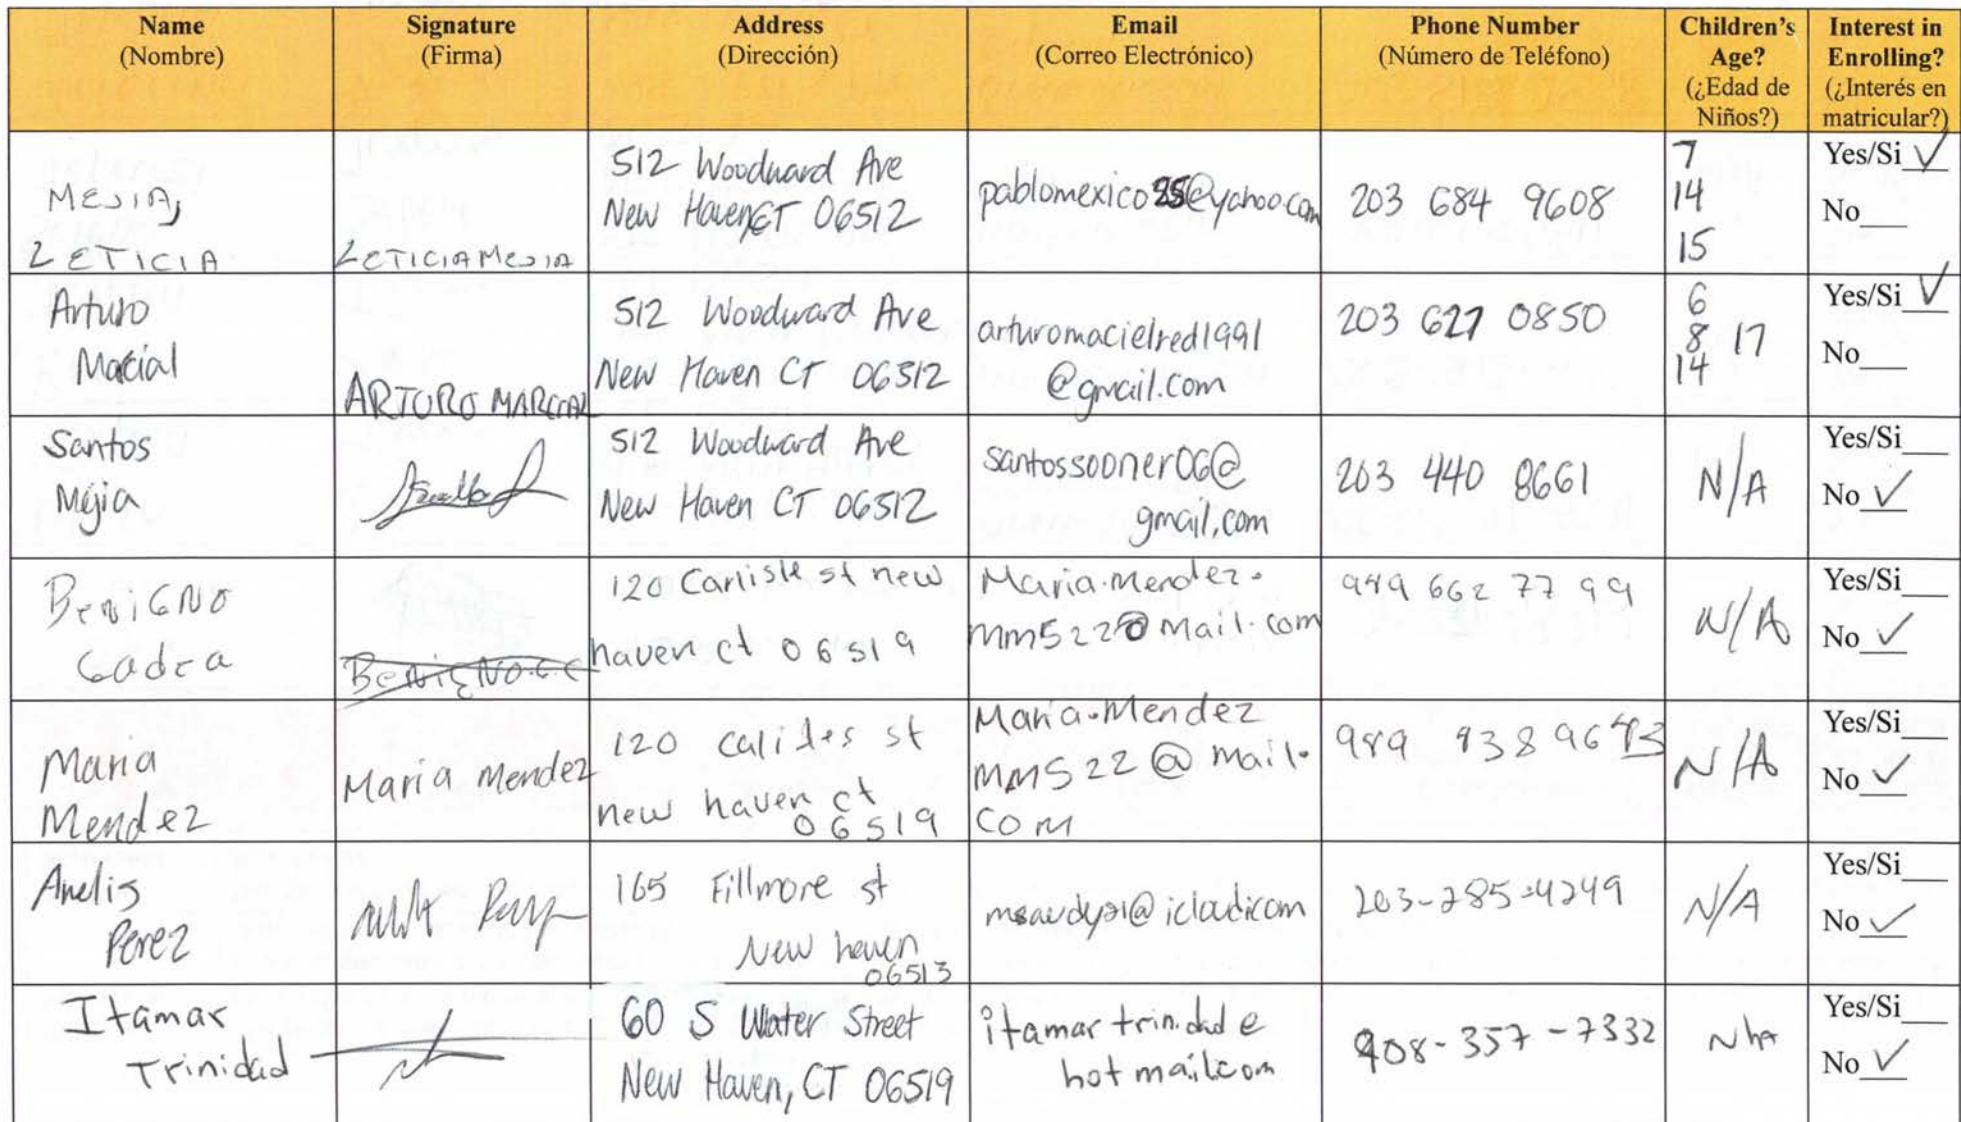 Name Signature Address Email Phone Number Children's Interest in
(Nombre) (Firma) (Dirección) (Correo Electrónico) (Número de Teléfono) Age? Enrolling?
(¿Edad de (¿Interés en
Niños?) matricular?)
MEJIA,
LETICIA
LETICIA MEJIA
512 Woodward Ave
New Haven, CT 06512
pablomexico25@yahoo.com
203 684 9608
7
14
15
Yes/Si ✓
No
Arturo
Macial
ARTURO MARCIAL
512 Woodward Ave
New Haven CT 06512
arturomacielred1991
@gmail.com
203 627 0850
6
8 17
14
Yes/Si ✓
No
Santos
Mejia
512 Woodward Ave
New Haven CT 06512
santossooner06@
gmail.com
203 440 8661
N/A
Yes/Si
No ✓
BeniGNo
120 Carlisle st new
haven ct 06519
Maria.mendez.
mm522@mail.com
662 77 99
N/A
Yes/Si
No ✓
Maria
Mendez
Maria mendez
120 st
new haven ct
06519
Maria.Mendez
MM522@mail.
com
N/A
Yes/Si
No ✓
Anelis
Perez
165 Fillmore st
New haven
06513
203-285-4249
N/A
Yes/Si
No ✓
Itamar
Trinidad
60 S Water Street
New Haven, CT 06519
itamartrinidad@
hotmail.com
908-357-7332
N/A
Yes/Si
No ✓